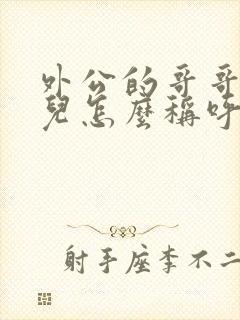 外公的哥哥
兒怎麼稱呼
射手座李不二